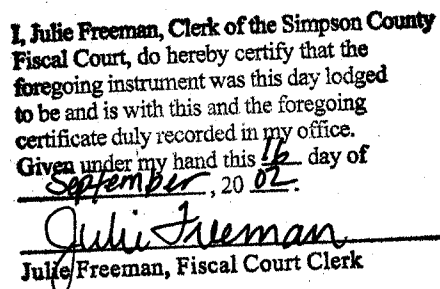 I, Julie Freeman, Clerk of the Simpson County
Fiscal Court, do hereby certify that the
foregoing instrument was this day lodged
to be and is with this and the foregoing
certificate duly recorded in my office.
Given under my hand this 16 day of
September, 20 02.
Julie Freeman
Julie Freeman, Fiscal Court Clerk